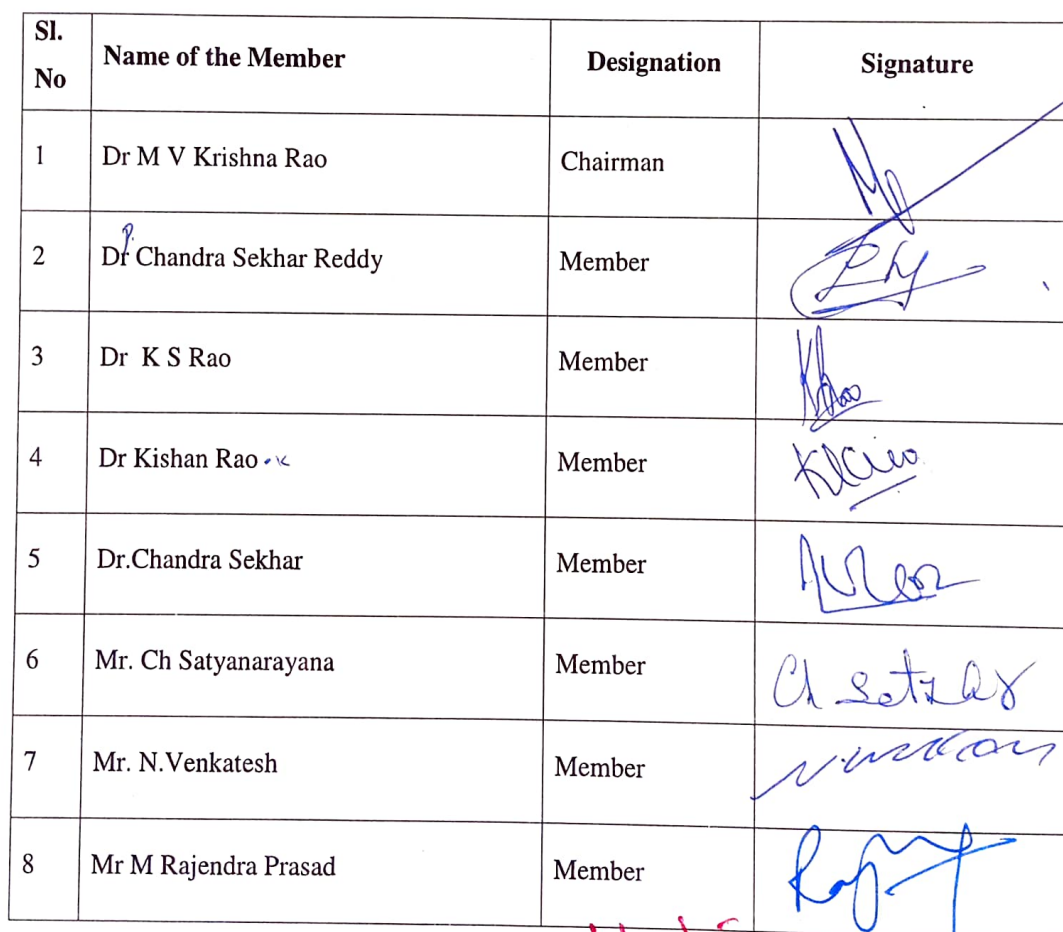 Sl. No Name of the Member Designation Signature
1 Dr M V Krishna Rao Chairman
2 Dr P. Chandra Sekhar Reddy Member
3 Dr K S Rao Member
4 Dr Kishan Rao .K Member
5 Dr.Chandra Sekhar Member
6 Mr. Ch Satyanarayana Member
7 Mr. N.Venkatesh Member
8 Mr M Rajendra Prasad Member